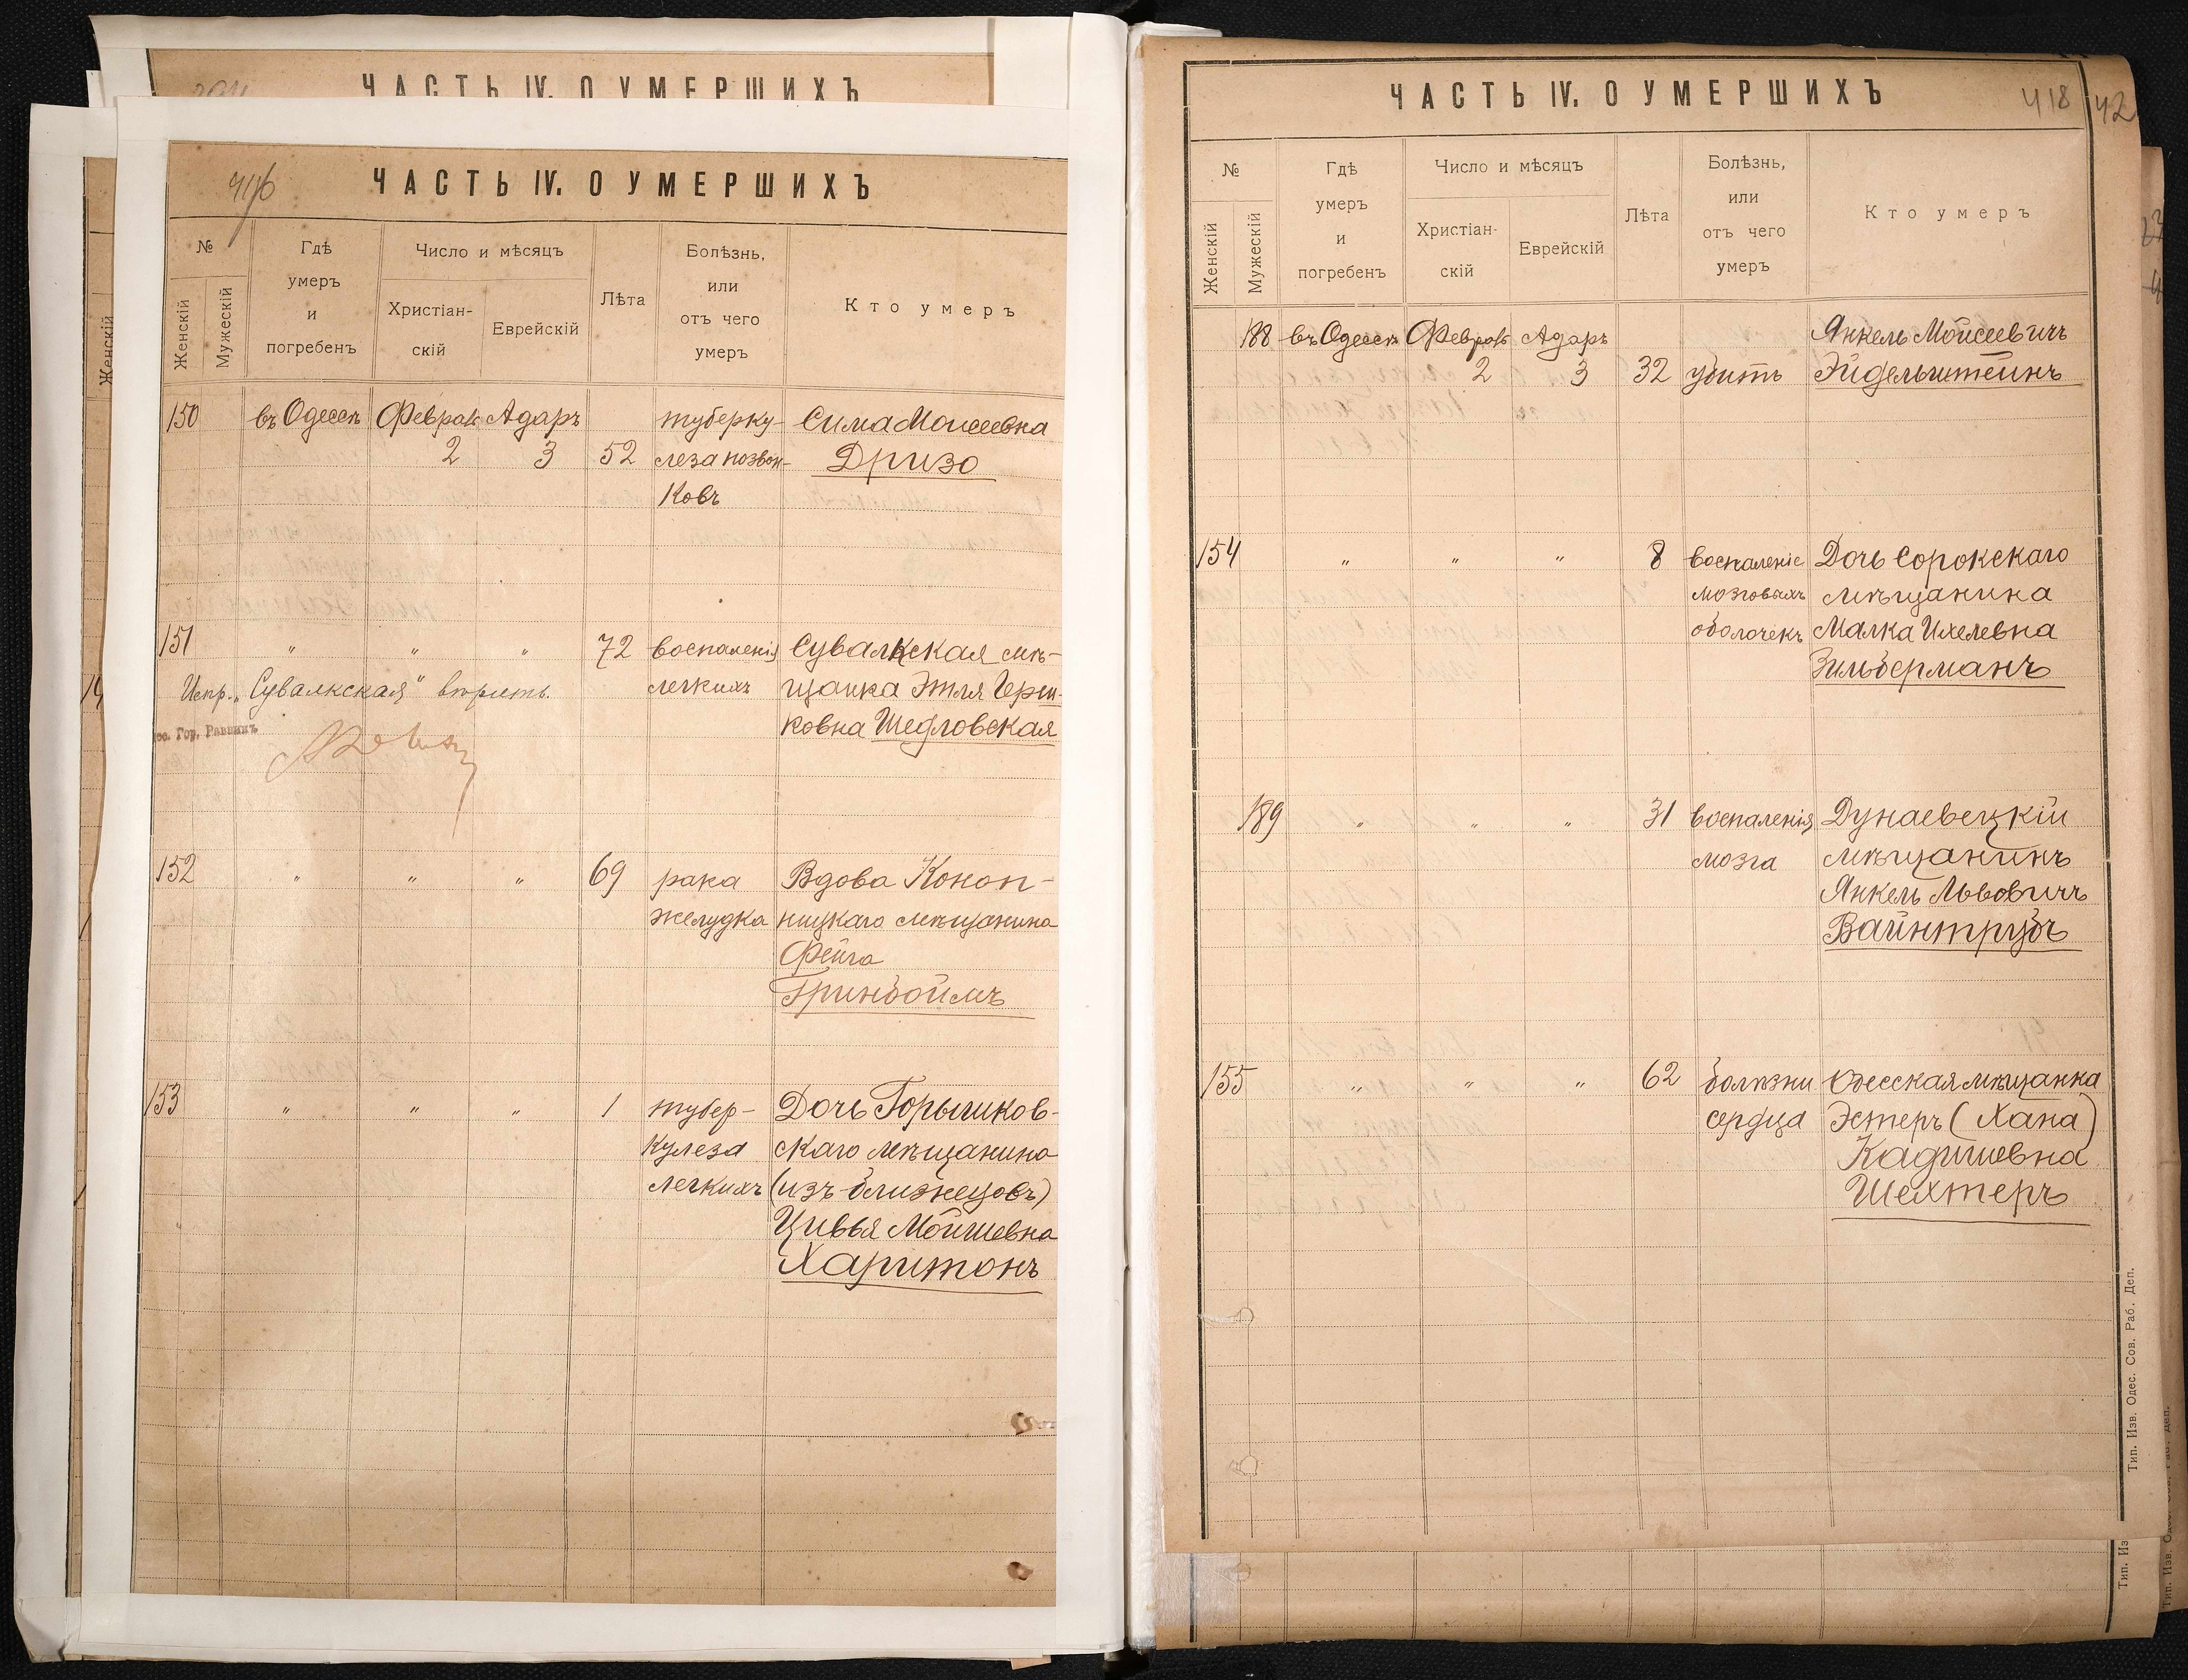 ЧАСТЬ IV. О УМЕРШИХЪ
Женскій
416
ЧАСТЬ IV. О УМЕРШИХЪ
№
Женскій
Мужескій
Гдѣ
умеръ
и
погребенъ
Число и мѣсяцъ
Христіан-
скій
Еврейскій
Лѣта
Болѣзнь,
или
отъ чего
умеръ
Кто умеръ
150 въ Одессѣ Феврал Адаръ туберку- Сима Моисеевна
2 3 52 леза позвон- Дризо
ковъ
151 " " " 72 воспаленія Сувалкская мѣ-
Испр. „Сувалкская" вѣрить. легкихъ щанка Этля Герш-
ковна Шедловская
Гор. Раввинъ
152 " " " 69 рака Вдова Коноп-
желудка ницкаго мѣщанина
Фейга
Гринбоймъ
153 " " " 1 тубер- Дочь Горышков-
кулеза скаго мѣщанина
легкихъ (изъ близнецовъ)
Цивья Мойшевна
Харитонъ
ЧАСТЬ IV. О УМЕРШИХЪ
418
42
№
Женскій
Мужескій
Гдѣ
умеръ
и
погребенъ
Число и мѣсяцъ
Христіан-
скій
Еврейскій
Лѣта
Болѣзнь,
или
отъ чего
умеръ
Кто умеръ
188 въ Одессѣ Феврал Адаръ Янкель Мойсеевичъ
2 3 32 убитъ Эйдельштейнъ
154 " " " 8 воспаленіе Дочь Сорокскаго
мозговыхъ мѣщанина
оболочекъ Малка Ихелевна
Зильберманъ
189 " " " 31 воспаленія Дунаевецкій
мозга мѣщанинъ
Янкель Львовичъ
Вайнтрубъ
155 " " " 62 болѣзни Одесская мѣщанка
сердца Эстеръ (Хана)
Кадишевна
Шехтеръ
Тип. Изв. Одес. Сов. Раб. Деп.